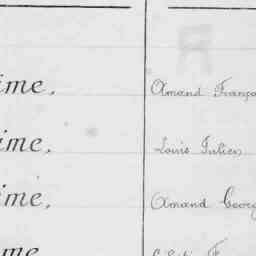 ime, Amand Franço
ime, Louis Julien
ime, Amand Georg
me